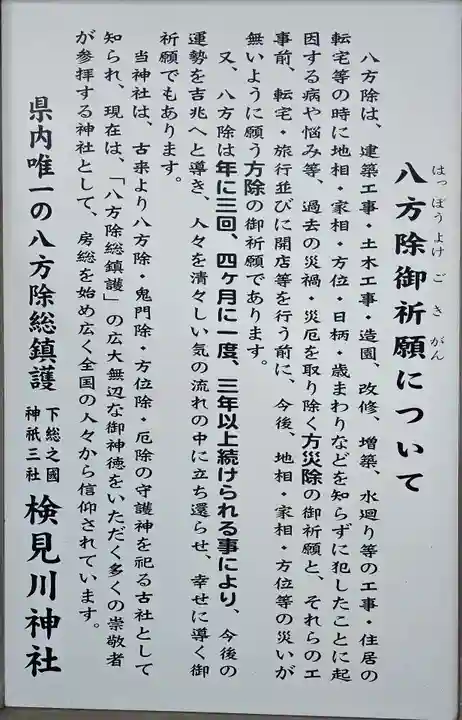 八方除御祈願について
はっぽうよけごきがん
八方除は、建築工事・土木工事・造園、改修、増築、水廻り等の工事・住居の
転宅等の時に地相・家相・方位・日柄・歳まわりなどを知らずに犯したことに起
因する病や悩み等、過去の災禍・災厄を取り除く方災除の御祈願と、それらの工
事前、転宅・旅行並びに開店等を行う前に、今後、地相・家相・方位等の災いが
無いように願う方除の御祈願であります。
又、八方除は年に三回、四ヶ月に一度、三年以上続けられる事により、今後の
運勢を吉兆へと導き、人々を清々しい気の流れの中に立ち還らせ、幸せに導く御
祈願でもあります。
当神社は、古来より八方除・鬼門除・方位除・厄除の守護神を祀る古社として
知られ、現在は、「八方除総鎮護」の広大無辺な御神徳をいただく多くの崇敬者
が参拝する神社として、房総を始め広く全国の人々から信仰されています。
県内唯一の八方除総鎮護
下総之國
神祇三社
検見川神社